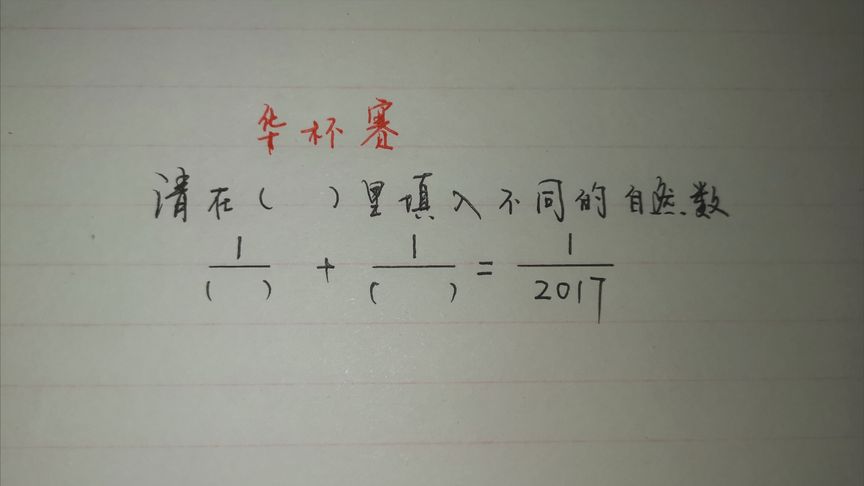 华杯赛
请在( )里填入不同的自然数
1/( ) + 1/( ) = 1/2017